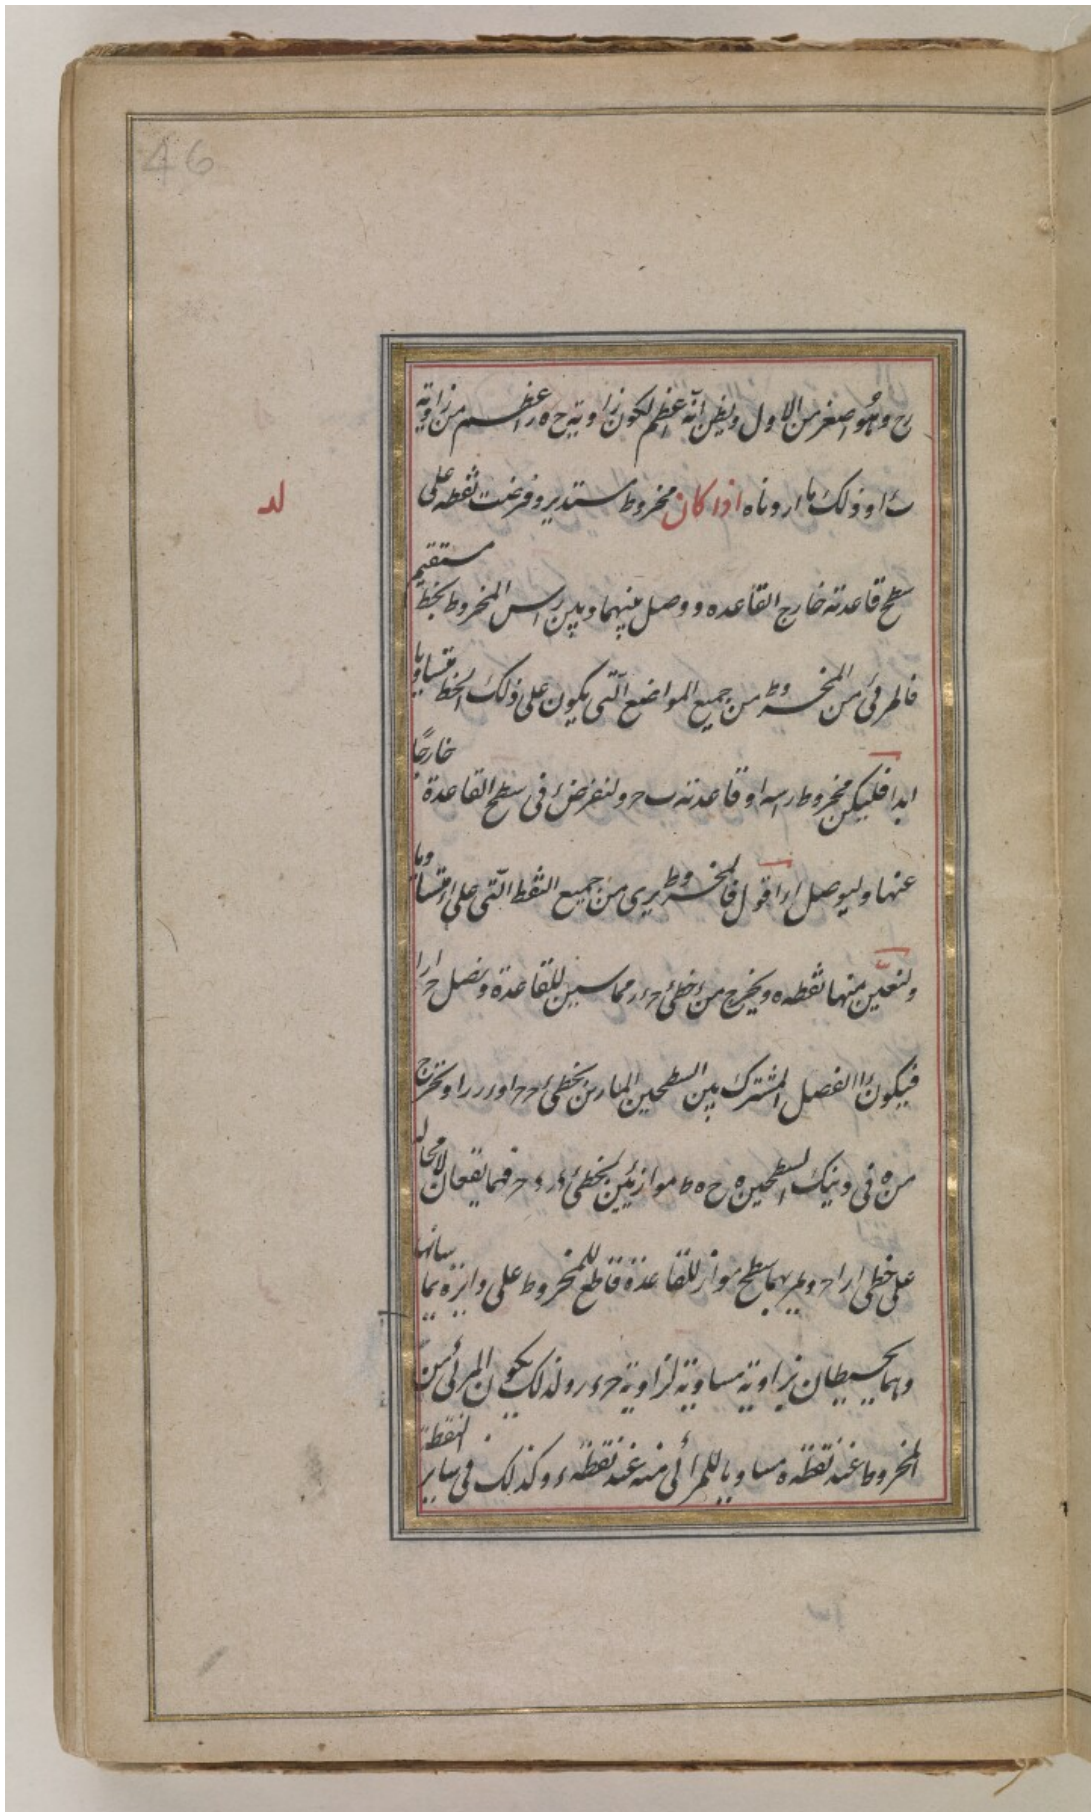 46
رح وهو اصغر من الاول ويظن انه اعظم لكون زاوية ح ه ر اعظم من زاوية
وذلك ما اردناه اذا كان مخروط مستدير وفرضت نقطه على
لد
سطح قاعدته خارج القاعده ووصل بينهما وبين راس المخروط بخط مستقيم
فالمرئى من المخروط من جميع المواضع التى يكون على ذلك الخط متساويا
ابدا فليكن مخروط راسه ا وقاعدته ب ح ولنفرض ء فى سطح القاعدة خارجا
عنها وليوصل ء ا اقول فالمخروط يرى من جميع النقط التى على ا ء متساويا
ولنعين منها نقطه ه ويخرج من ء خطى ء ح ء ر مماسين للقاعدة ونصل ح ا ر ا
فيكون ء ا الفصل المشترك بين السطحين المارين بخطى ء ح ح ا و ء ر ر ا ونخرج
من ه فى ذينك السطحين ه ح ه ط موازيين لخطى ء ر ء ح فهما يقعان لا محاله
على خطى ا ر ا ح ويمر بهما سطح مواز للقاعدة قاطع للمخروط على دائرة يماسانها
وهما يحيطان بزاوية مساوية لزاوية ح ء ر ولذلك يكون المرئى من
المخروط عند نقطه ه مساويا للمرئى منه عند نقطه ء وكذلك فى ساير النقط